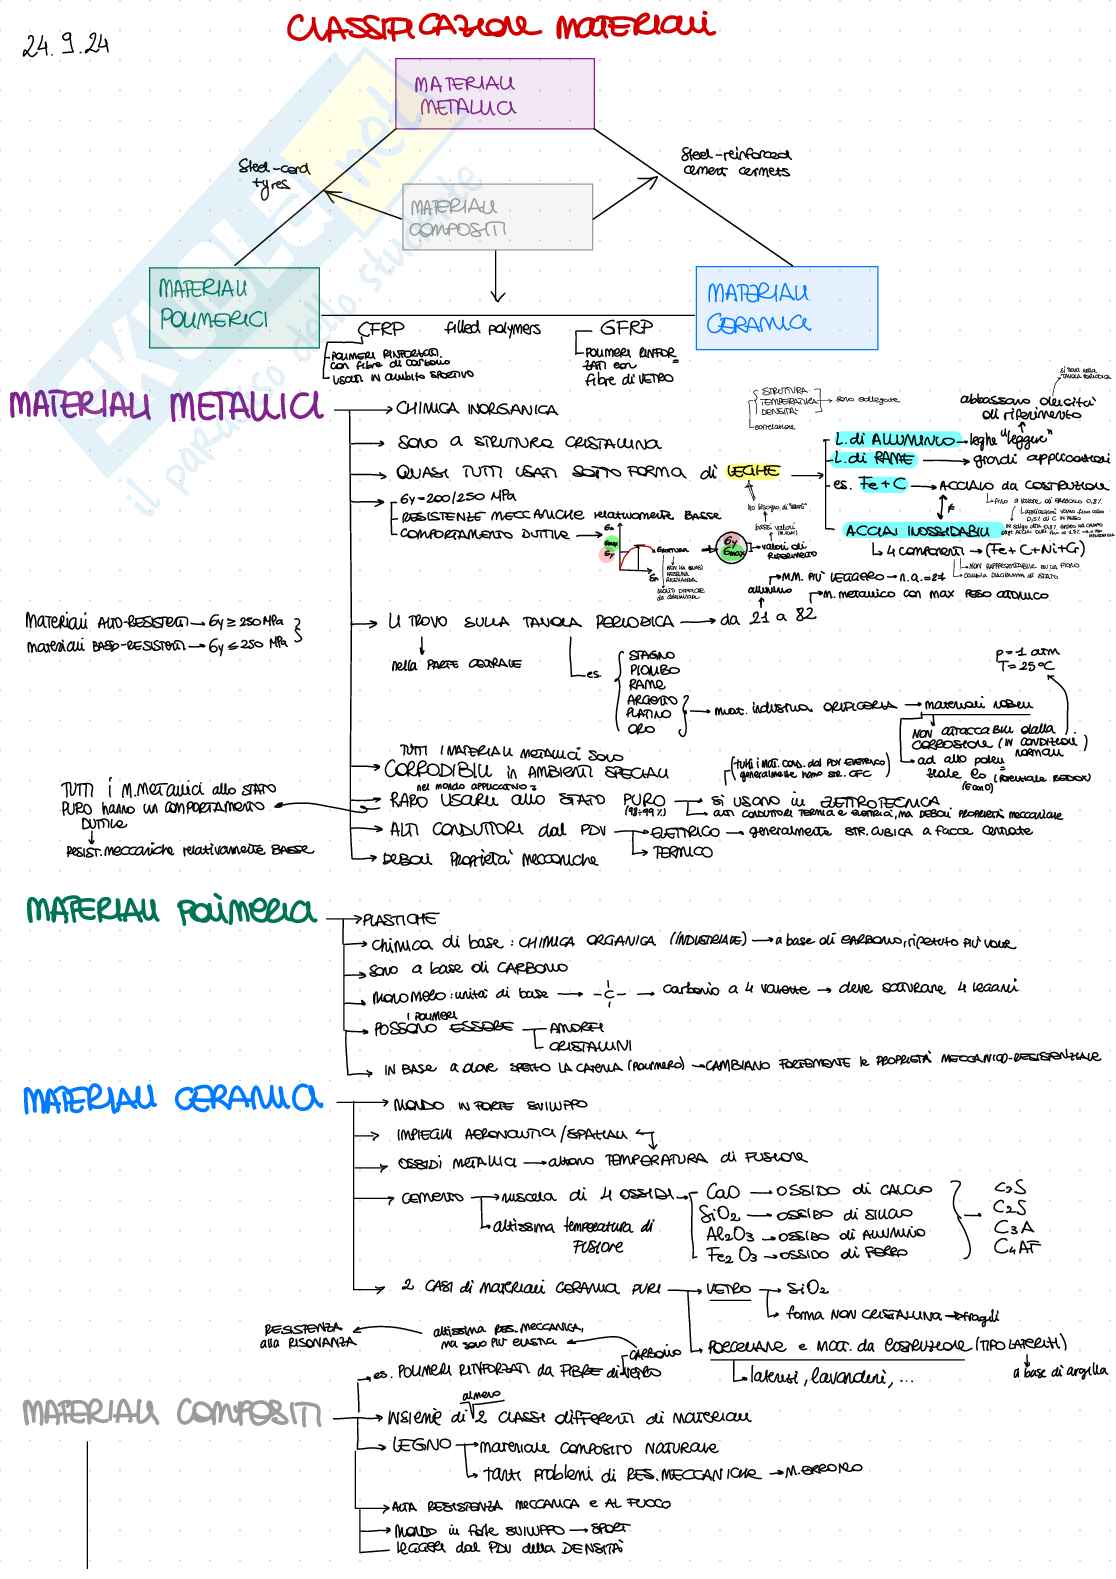 CLASSIFICAZIONE MATERIALI
24.9.24
MATERIALI
METALLICI
Steel-cord
tyres
Steel-reinforced
cement cermets
MATERIALI
COMPOSITI
MATERIALI
POLIMERICI
MATERIALI
CERAMICI
CFRP
filled polymers
GFRP
POLIMERI RINFORZATI
con fibre di carbonio
USATI IN ambito SPORTIVO
POLIMERI RINFOR=
ZATI con
fibre di VETRO
MATERIALI METALLICI
CHIMICA INORGANICA
STRUTTURA
TEMPERATURA
DENSITA'
sono collegate
correlazione
si trova nella
TAVOLA PERIODICA
abbassano densità
di riferimento
SONO A STRUTTURA CRISTALLINA
L. di ALLUMINIO
leghe "leggere"
L. di RAME
grandi applicazioni
QUASI TUTTI USATI SOTTO FORMA di LEGHE
es. Fe+C
ACCIAIO da COSTRUZIONE
σy=200/250 MPa
RESISTENZE MECCANICHE relativamente BASSE
COMPORTAMENTO DUTTILE
ROTTURA
bassi valori
σy
σmax
valori di
RIFERIMENTO
ACCIAI INOSSIDABILI
4 COMPONENTI
(Fe+C+Ni+Cr)
MM. PIÙ LEGGERO
n.a.=27
alluminio
M. metallico con max PESO ATOMICO
Materiali ALTO-RESISTENTI → σy ≥ 250 MPa
materiali BASSO-RESISTENTI → σy ≤ 250 MPa
LI TROVO SULLA TAVOLA PERIODICA
da 21 a 82
nella PARTE CENTRALE
es.
STAGNO
PIOMBO
RAME
ARGENTO
PLATINO
ORO
mat. industria OREFICERIA
materiali NOBILI
p=1 atm
T=25°C
NON ATTACCABILI dalla
CORROSIONE (IN CONDIZIONI
NORMALI)
ad alto poten=
ziale E0 (POTENZIALE REDOX)
(E0>0)
TUTTI I MATERIALI METALLICI SONO
CORRODIBILI in AMBIENTI SPECIALI
(tutti i mat. cond. dal PDV ELETTRICO
generalmente hanno STR. CFC)
TUTTI i M. METALLICI allo STATO
PURO hanno un COMPORTAMENTO
DUTTILE
RESIST. meccaniche relativamente BASSE
nel mondo applicativo:
RARO USARLI allo STATO PURO
(98÷99%)
si USANO in ELETTROTECNICA
ALTI CONDUTTORI TERMICI E ELETTRICI, MA DEBOLI PROPRIETÀ MECCANICHE
ALTI CONDUTTORI dal PDV
ELETTRICO
generalmente STR. CUBICA a facce centrate
TERMICO
DEBOLI PROPRIETA' MECCANICHE
MATERIALI POLIMERICI
PLASTICHE
Chimica di base: CHIMICA ORGANICA (INDUSTRIALE)
a base di CARBONIO, ripetuto PIÙ VOLTE
SONO a base di CARBONIO
MONOMERO: unità di base
-C-
carbonio a 4 valenze
deve SATURARE 4 LEGAMI
I POLIMERI
POSSONO ESSERE
AMORFI
CRISTALLINI
IN BASE a dove SPEZZO LA CATENA (POLIMERO)
CAMBIANO FORTEMENTE le PROPRIETÀ MECCANICO-RESISTENZIALE
MATERIALI CERAMICI
MONDO IN FORTE SVILUPPO
IMPIEGHI AERONAUTICI/SPAZIALI
OSSIDI METALLICI
altano TEMPERATURA di FUSIONE
CEMENTO
miscela di 4 OSSIDI
altissima temperatura di
FUSIONE
CaO → OSSIDO di CALCIO
SiO2 → OSSIDO di SILICIO
Al2O3 → OSSIDO di ALLUMINIO
Fe2O3 → OSSIDO di FERRO
C3S
C2S
C3A
C4AF
2 CASI di materiali CERAMICI PURI
VETRO
SiO2
forma NON CRISTALLINA → fragili
PORCELLANE e MAT. da COSTRUZIONE (TIPO LATERIZI)
laterizi, lavandini, ...
a base di argilla
RESISTENZA
alla RISONANZA
altissima RES. MECCANICA,
ma sono PIÙ ELASTICI
CARBONIO
es. POLIMERI RINFORZATI da FIBRE di VETRO
MATERIALI COMPOSITI
almeno
INSIEME di 2 CLASSI differenti di materiali
LEGNO
materiale COMPOSITO NATURALE
tanti problemi di RES. MECCANICHE
ALTA RESISTENZA MECCANICA e AL FUOCO
MONDO in forte SVILUPPO → SPORT
LEGGERI dal PDV della DENSITÀ